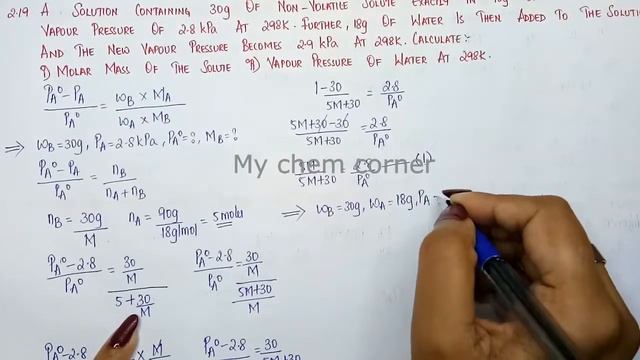 2.19 A SOLUTION CONTAINING 30g OF NON-VOLATILE SOLUTE EXACTLY IN
VAPOUR PRESSURE OF 2.8 kPa AT 298K. FURTHER, 18g OF WATER IS THEN ADDED TO THE SOLUTIO
AND THE NEW VAPOUR PRESSURE BECOMES 2.9 kPa AT 298K. CALCULATE:-
I) MOLAR MASS OF THE SOLUTE II) VAPOUR PRESSURE OF WATER AT 298K.
(PA° - PA)/PA° = (WB × MA)/(WA × MB)
⇒ WB = 30g, PA = 2.8kPa, PA° = ?, MB = ?
(PA° - PA)/PA° = nB/(nA + nB)
nB = 30g/M nA = 90g/18g/mol = 5 molu
(PA° - 2.8)/PA° = (30/M)/(5 + 30/M) (PA° - 2.8)/PA° = (30/M)/((5M+30)/M)
PA° - 2.8 × M PA° - 2.8 = 30/5M+30
1 - 30/(5M+30) = 2.8/PA°
(5M + 30 - 30)/(5M+30) = 2.8/PA°
5M/(5M+30) = 2.8/PA° (1)
My chem corner
⇒ WB = 30g, WA = 18g, PA =